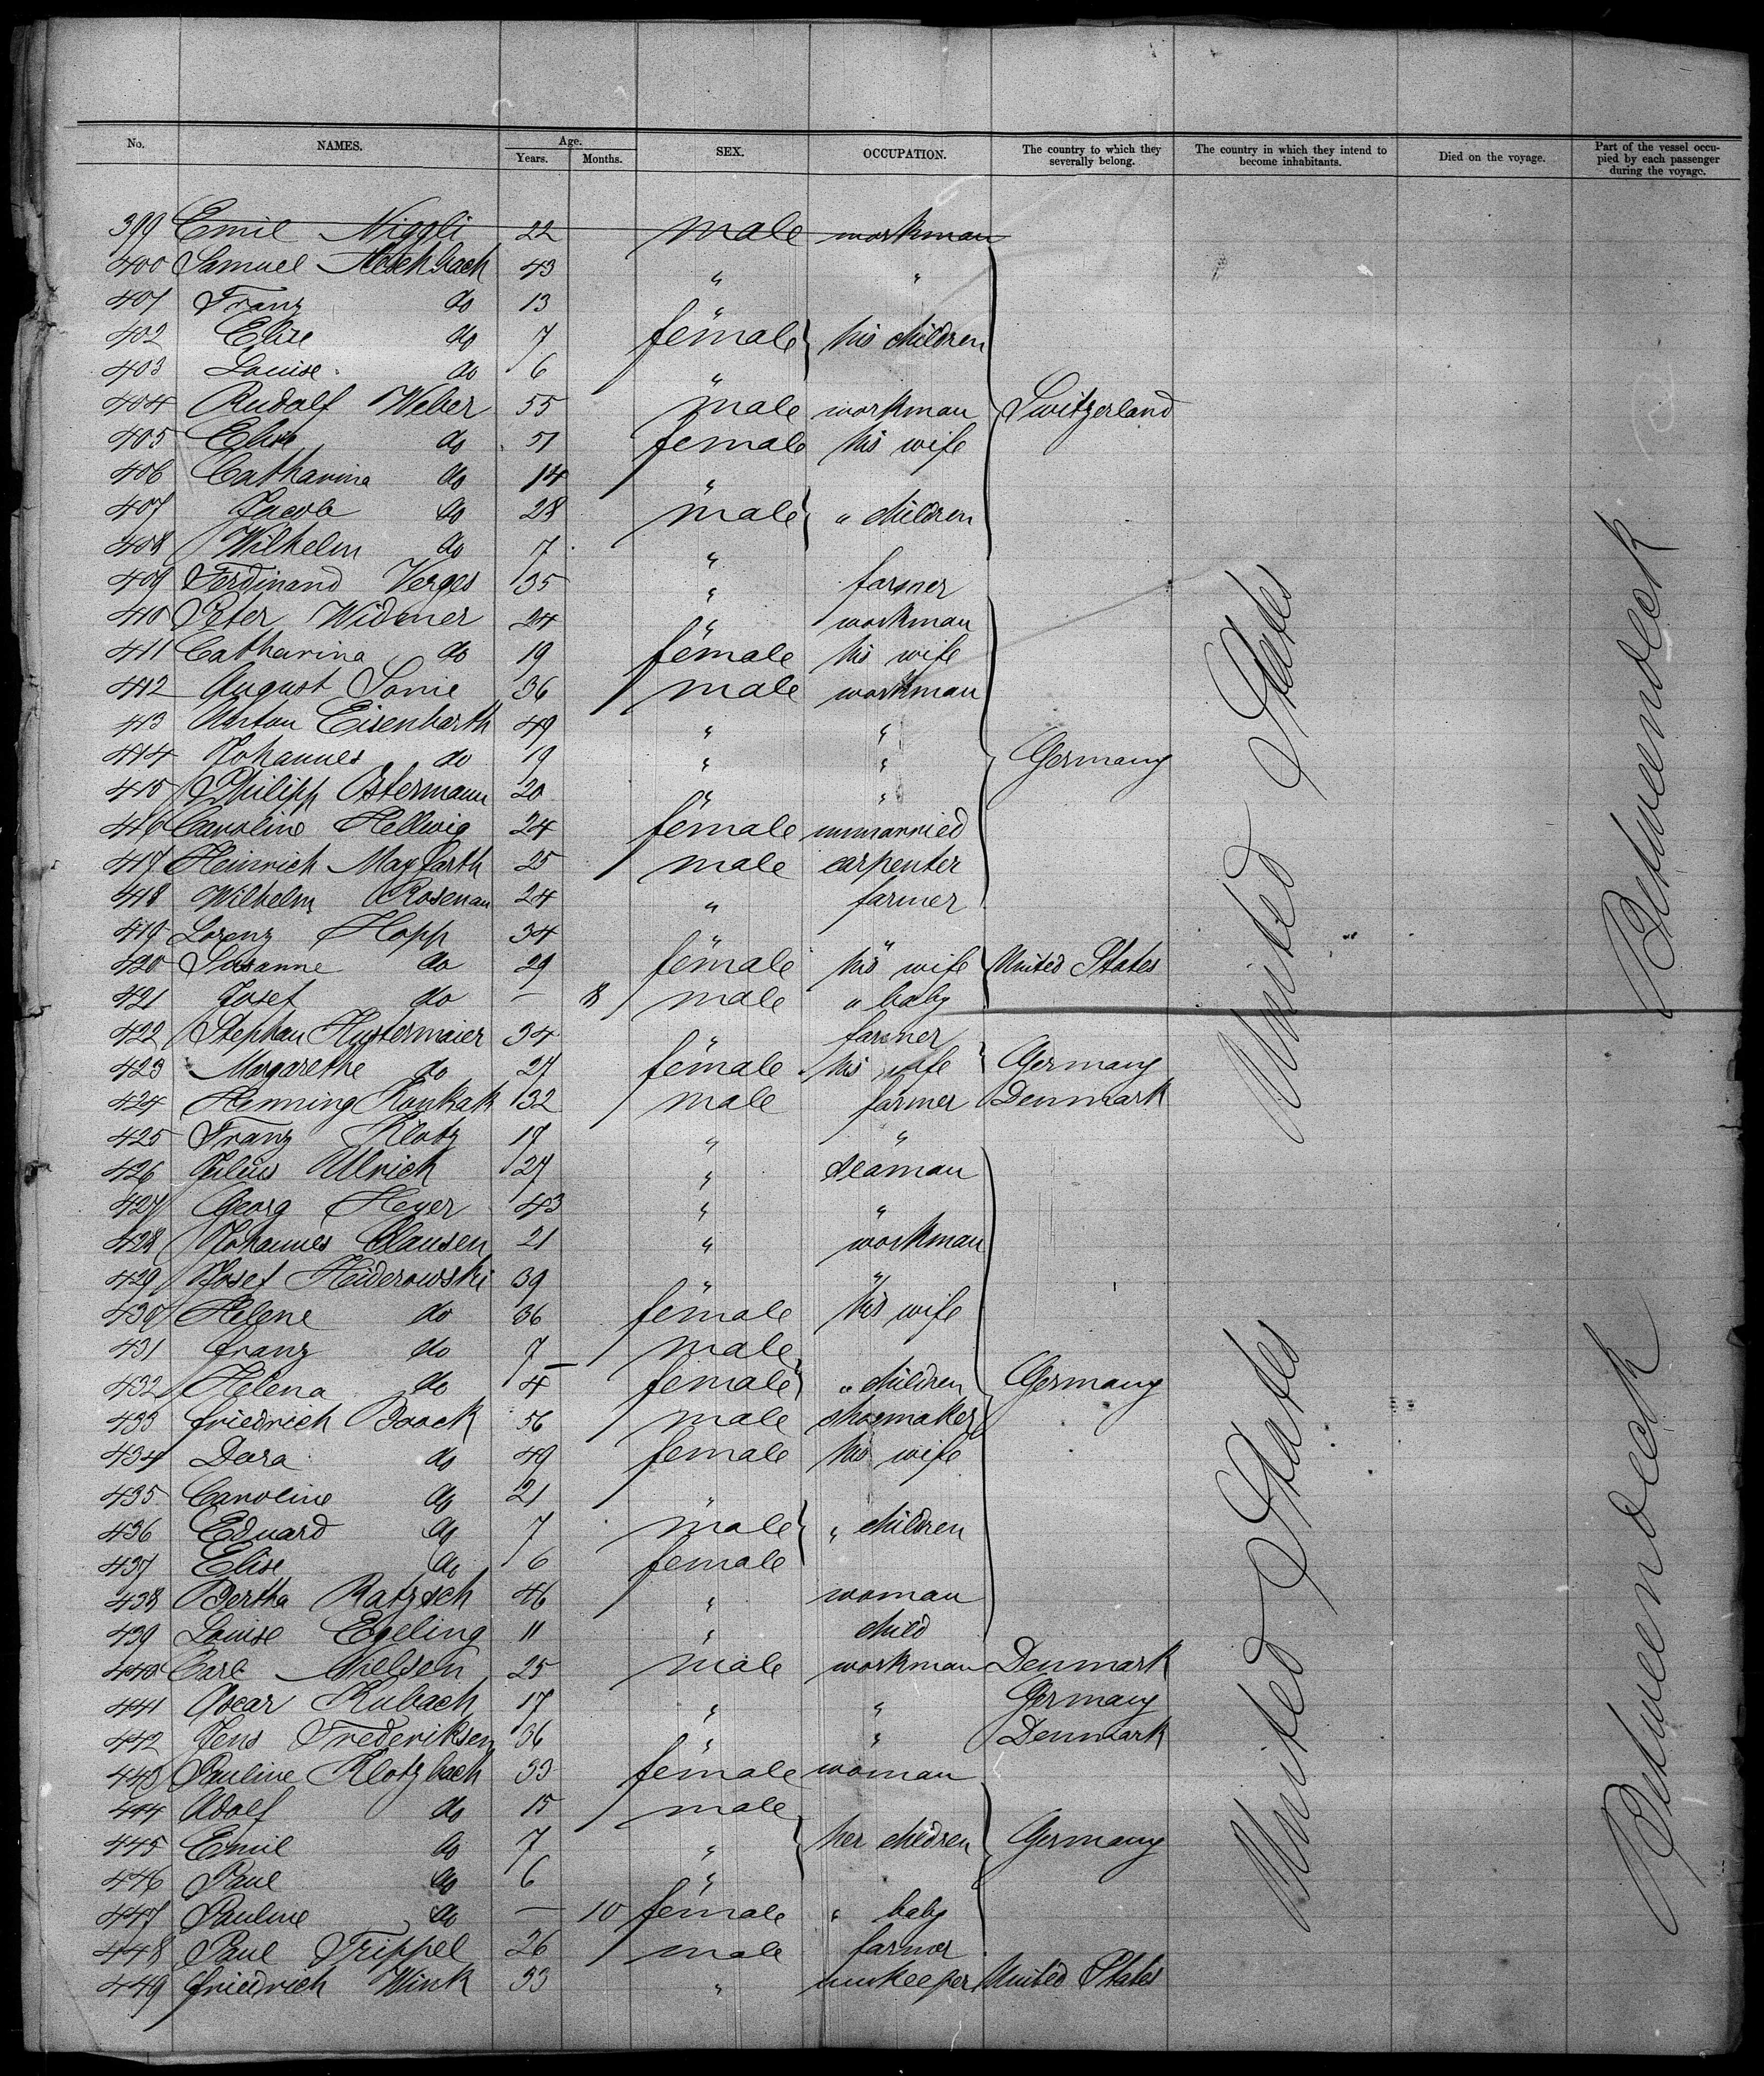 No. NAMES. Age. Years. Months. SEX. OCCUPATION. The country to which they severally belong. The country in which they intend to become inhabitants. Died on the voyage. Part of the vessel occupied by each passenger during the voyage.
399 Emil Niggli 22 male workman
400 Samuel Aeschbach 43 " "
401 Franz do 13 "
402 Elise do 7 female his children
403 Louise do 6 "
404 Rudolf Weber 55 male workman Switzerland
405 Elise do 51 female his wife
406 Catharina do 14 "
407 Jacob do 28 male " children
408 Wilhelm do 7 "
409 Ferdinand Verges 35 " farmer
410 Peter Widmer 24 " workman
411 Catharina do 19 female his wife
412 August 36 male workman
413 Anton Eisenbarth 49 " "
414 Johannes do 19 " " Germany
415 Philipp Ostermann 20 " "
416 Caroline Hellwig 24 female unmarried
417 Heinrich Mayfarth 25 male carpenter
418 Wilhelm Rosenau 24 " farmer
419 Lorenz Hopp 34 " "
420 Susanne do 29 female his wife United States
421 Josef do — 8 male " baby
422 Stephan Hustermaier 34 " farmer
423 Margarethe do 27 female his wife Germany
424 Henning 32 male farmer Denmark
425 Franz Klotz 17 " "
426 Julius Ullrich 27 " seaman
427 Georg Heyer 43 " "
428 Johannes Clausen 21 " workman
429 Josef Heiderowski 39 " "
430 Helene do 36 female his wife
431 Franz do 7 male
432 Helena do 4 female " children Germany
433 Friedrich Boock 56 male shoemaker
434 Dora do 49 female his wife
435 Caroline do 21 "
436 Eduard do 7 male " children
437 Elise do 6 female
438 Bertha Ratzsch 46 " woman
439 Louise Egeling 11 " child
440 Carl Nielsen 25 male workman Denmark
441 Oscar Kubach 17 " " Germany
442 Jens Frederiksen 36 " " Denmark
443 Pauline Klotzbach 33 female woman
444 Adolf do 15 male
445 Emil do 7 " her children Germany
446 Paul do 6 "
447 Pauline do — 10 female " baby
448 Paul Trippel 26 male farmer
449 Friedrich Wink 53 " innkeeper United States
United States
United States
Betweendeck
Betweendeck